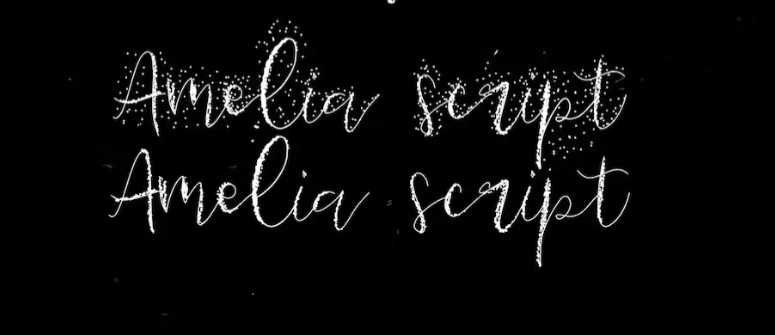 Amelia script
Amelia script